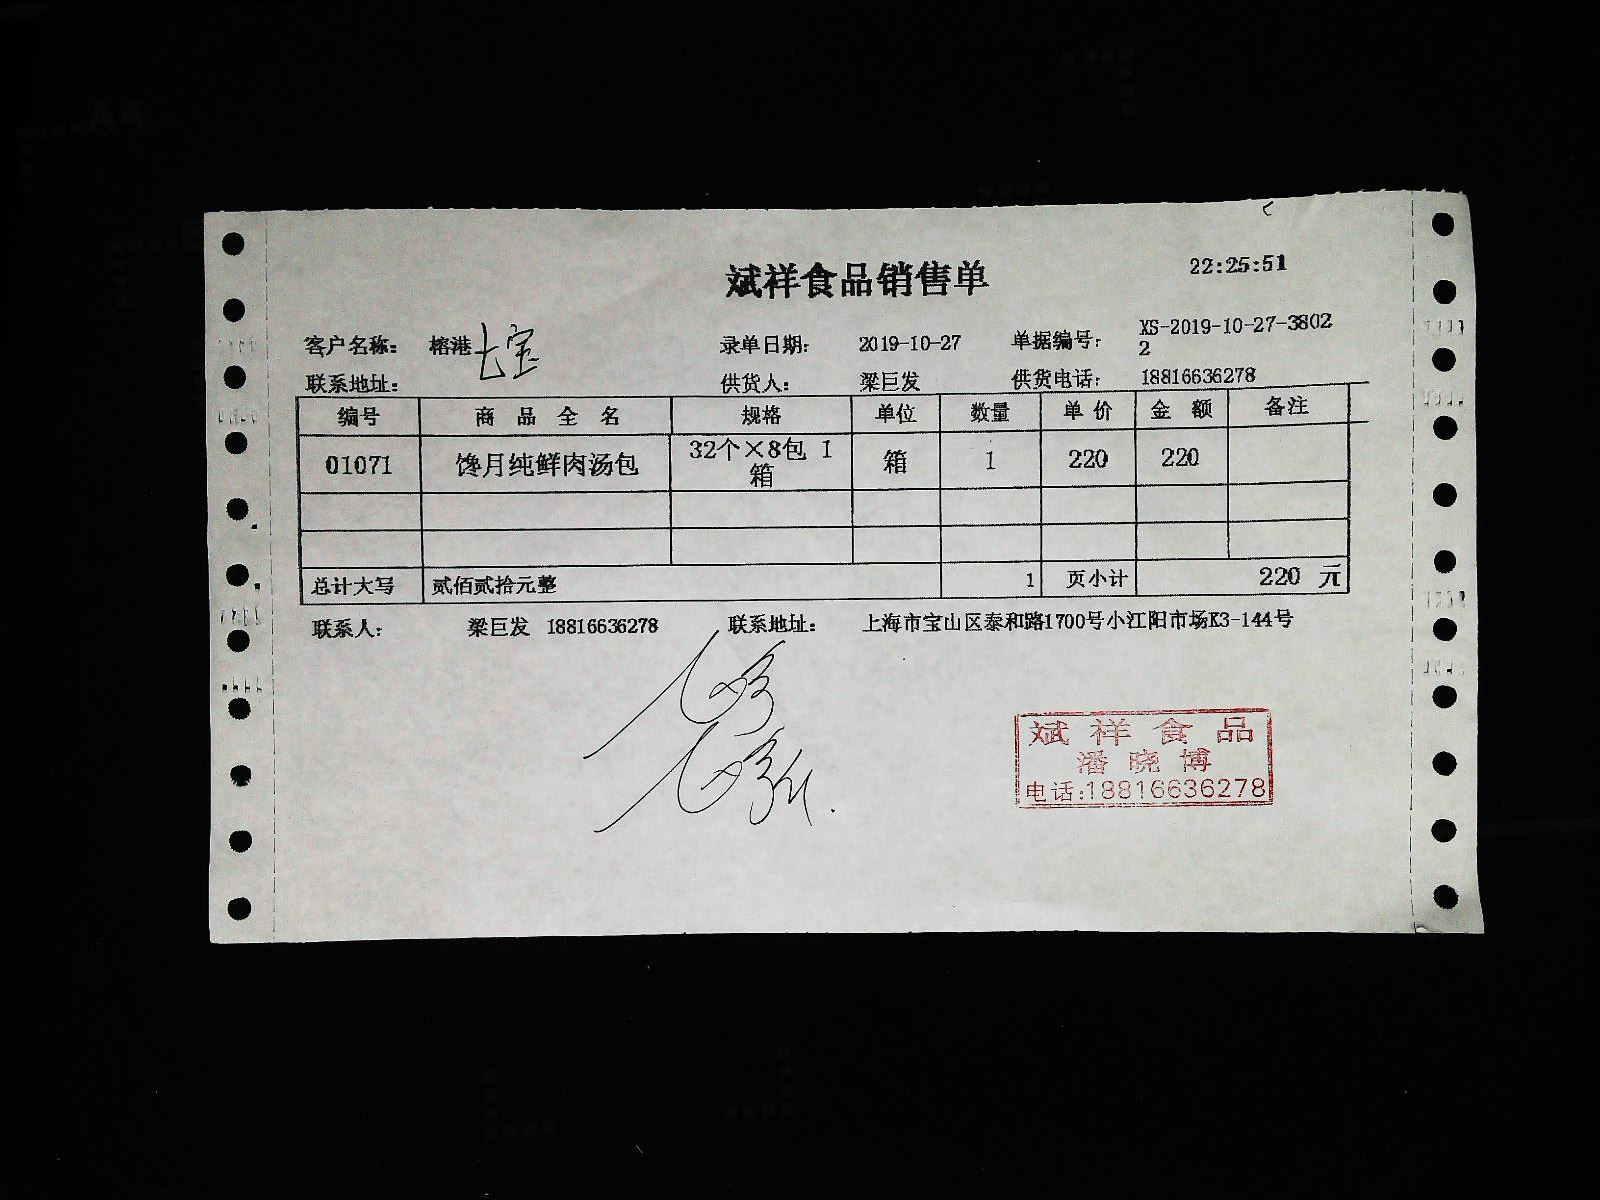 斌祥食品销售单 22:25:51
客户名称： 榕港七宝 录单日期： 2019-10-27 单据编号： XS-2019-10-27-3802
2
联系地址： 供货人： 梁巨发 供货电话： 18816636278
编号 商品全名 规格 单位 数量 单价 金额 备注
01071 馋月纯鲜肉汤包 32个×8包 1 箱 1 220 220
箱
总计大写 贰佰贰拾元整 1 页小计 220 元
联系人： 梁巨发 18816636278 联系地址： 上海市宝山区泰和路1700号小江阳市场K3-144号
斌祥食品
潘晓博
电话:18816636278